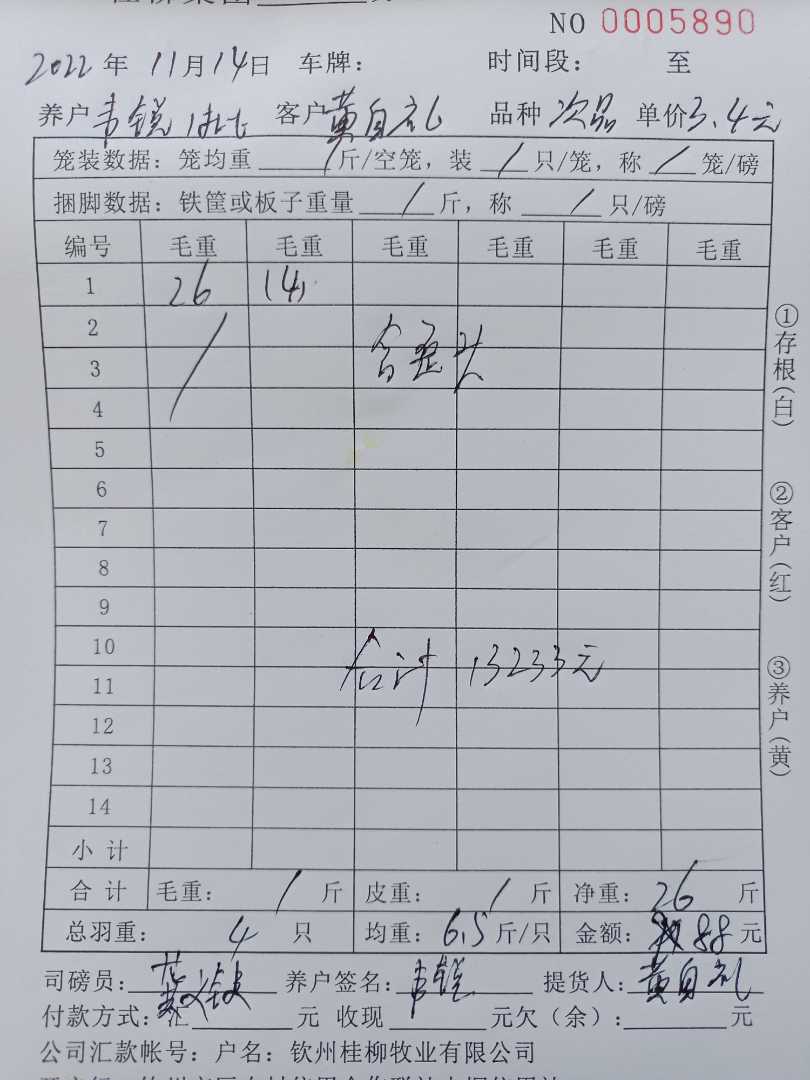 NO 0005890
2022 年 11 月 14 日 车牌： 时间段： 至
养户 韦锐 客户 黄自礼 品种 次品 单价 3.4 元
笼装数据：笼均重 / 斤/空笼，装 / 只/笼，称 / 笼/磅
捆脚数据：铁筐或板子重量 / 斤，称 / 只/磅
编号 毛重 毛重 毛重 毛重 毛重 毛重
1 26 (4)
2
3 含歪头
4
5
6
7
8
9
10
11 合计 13233元
12
13
14
小计
合计 毛重： / 斤 皮重： / 斤 净重：26 斤
总羽重： 4 只 均重：6.5 斤/只 金额：88 元
司磅员： 养户签名：韦锐 提货人：黄自礼
付款方式：汇 元 收现 元欠（余）： 元
公司汇款帐号：户名：钦州桂柳牧业有限公司
①存根（白）
②客户（红）
③养户（黄）